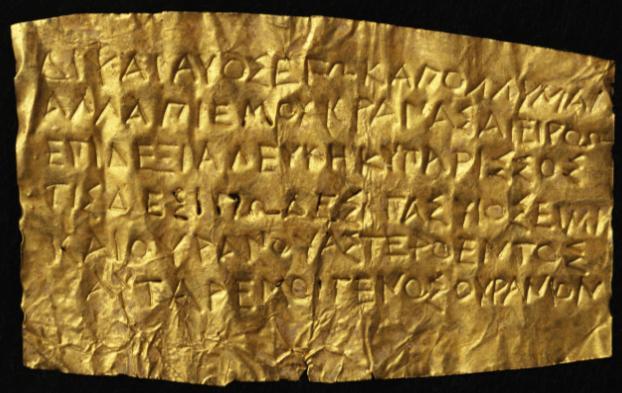 ΔΙΨΑΙΑΥΟΣΕΓΩΚΑΠΟΛΛΥΜΑΙ
ΑΛΛΑΠΙΕΜΟΥΚΡΑΝΑΣΑΙΕΙΡΟΩ
ΕΠΙΔΕΞΙΑΛΕΥΚΗΚΥΠΑΡΙΣΣΟΣ
ΤΙΣΔΕΣΙΠΩΔΕΣΙΓΑΣΥΙΟΣΕΙΜΙ
ΚΑΙΟΥΡΑΝΟΥΑΣΤΕΡΟΕΝΤΟΣ
ΑΤΑΡΕΜΟΙΓΕΝΟΣΟΥΡΑΝΙΟΝ